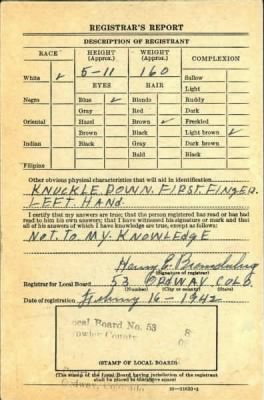 REGISTRAR'S REPORT
DESCRIPTION OF REGISTRANT
RACE
HEIGHT
(Approx.)
WEIGHT
(Approx.)
COMPLEXION
White ✓
5-11
160
Sallow
Light
EYES
HAIR
Negro
Blue ✓
Blonde
Ruddy
Gray
Red
Dark
Oriental
Hazel
Brown ✓
Freckled
Brown
Black
Light brown ✓
Indian
Black
Gray
Dark brown
Bald
Black
Filipino
Other obvious physical characteristics that will aid in identification
KNUCKLE DOWN. FIRST FINGER
LEFT HAND.
I certify that my answers are true; that the person registered has read or has had
read to him his own answers; that I have witnessed his signature or mark and that
all of his answers of which I have knowledge are true, except as follows:
NOT TO MY KNOWLEDGE
Henry E.
Registrar for Local Board 53 ORDWAY COLO.
(Number) (City or county) (State)
Date of registration 16-1942
Local Board No. 53
Crowley County
(STAMP OF LOCAL BOARD)
(The stamp of the Local Board having jurisdiction of the registrant
shall be placed in the above space)